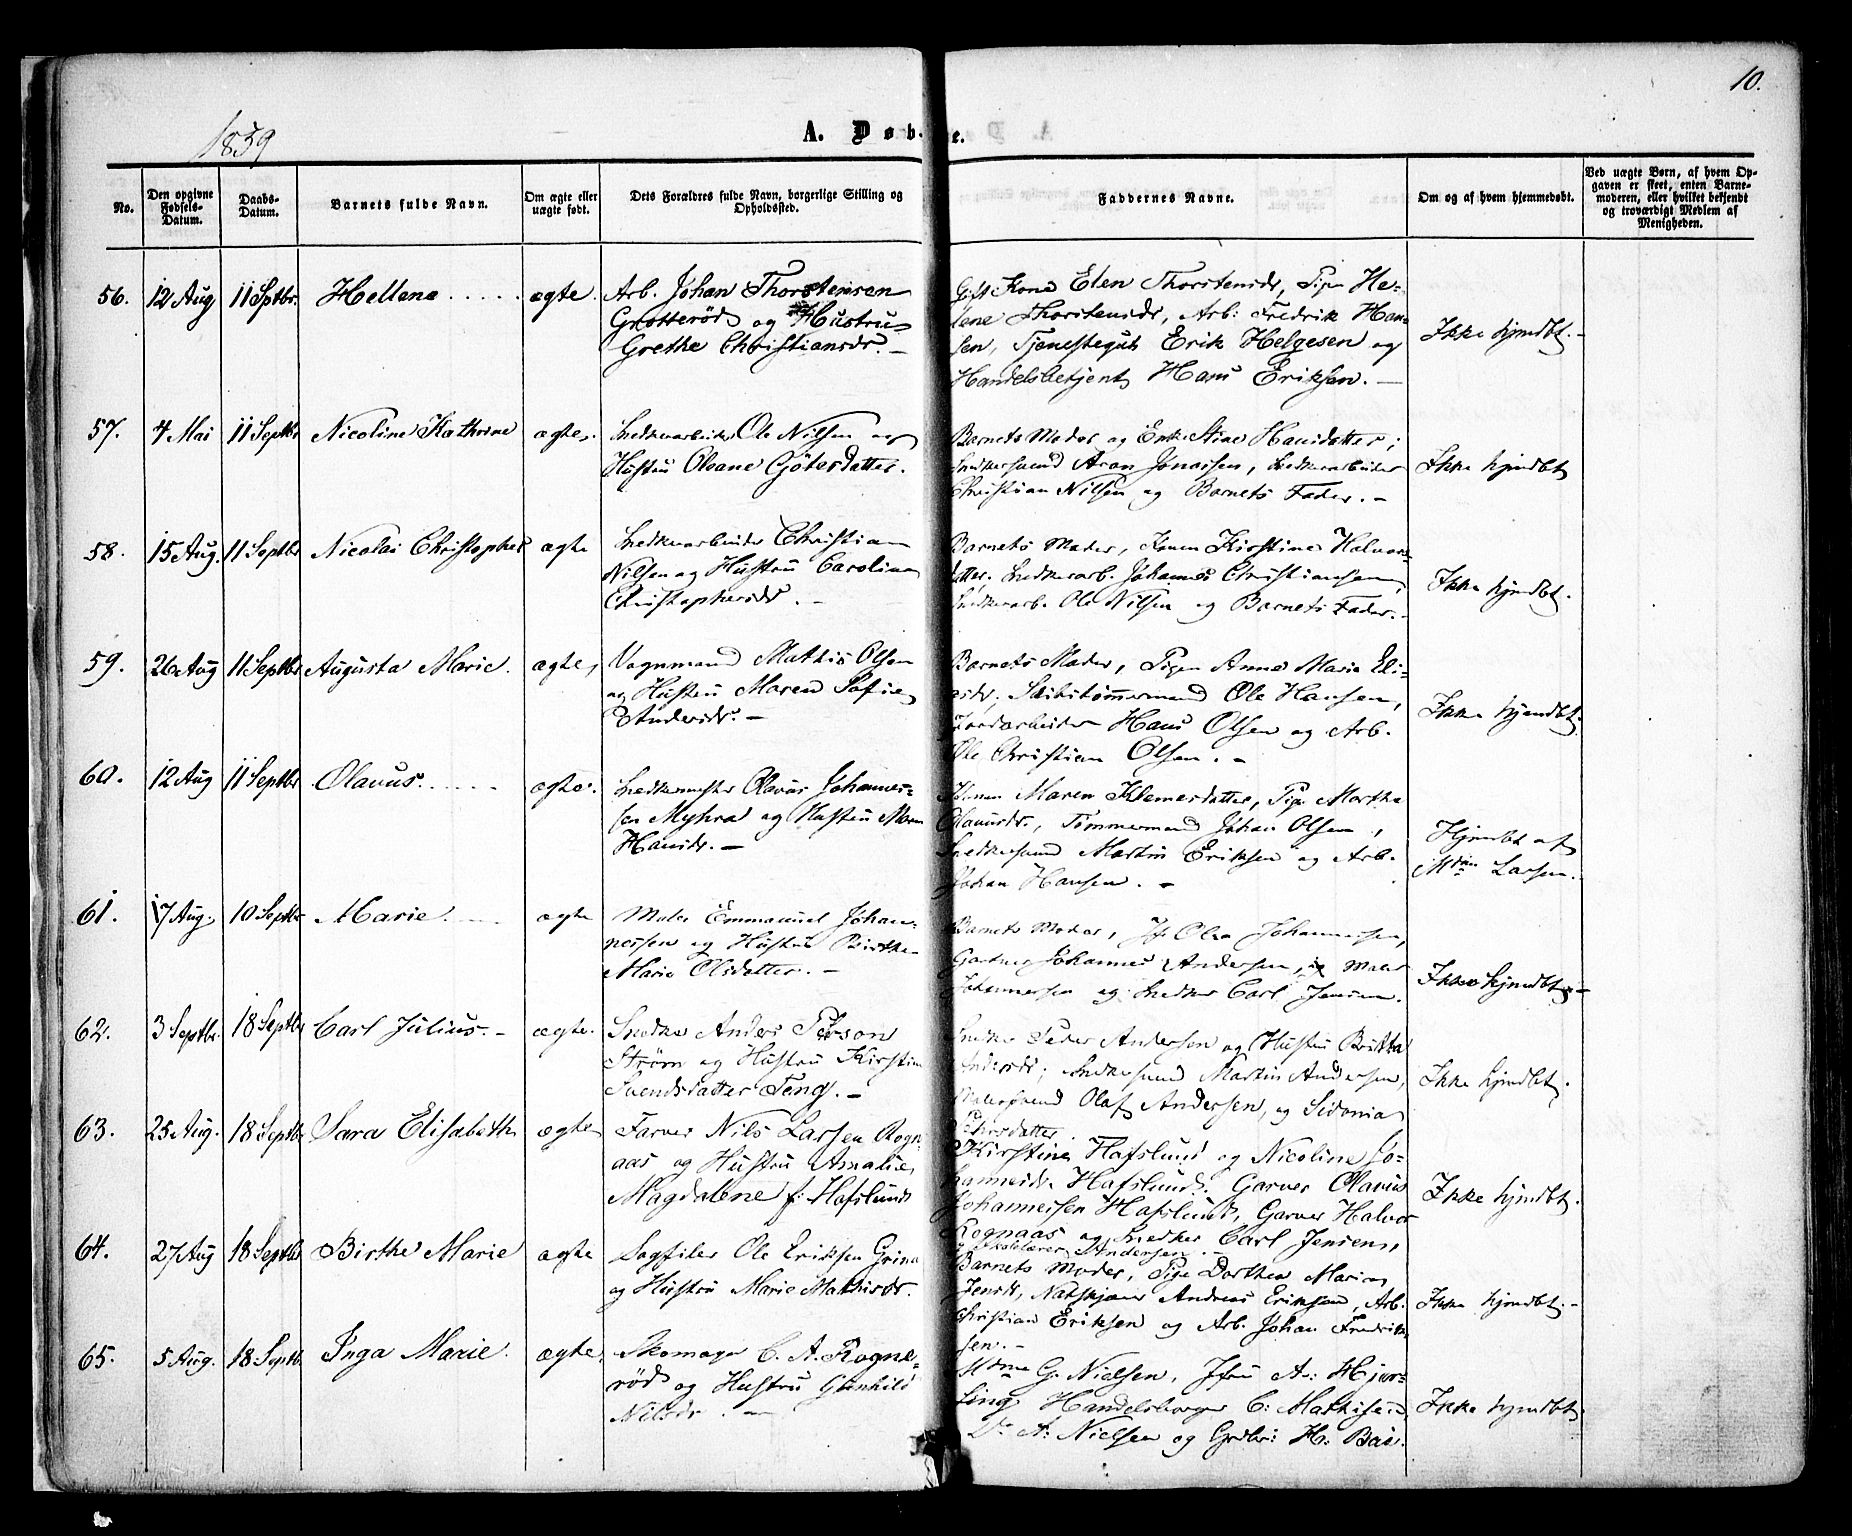 10.
1859
A. Døbte.
No.
Den opgivne Fødsels-Datum.
Daabs-Datum.
Barnets fulde Navn.
Om ægte eller uægte født.
Dets Forældres fulde Navn, borgerlige Stilling og Opholdssted.
Faddernes Navne.
Om og af hvem hjemmedøbt.
Ved uægte Børn, af hvem Opgaven er skeet, enten Barnemoderen, eller hvilket bekjendt og troværdigt Medlem af Menigheden.
56. 12 Aug 11 Septbr. Hellene ægte.
Arb. Johan Thorstensen
Grotterød og Hustru
Grethe Christiansdr. -
Gift Kone Elen Thorstensdr, Pige He-
lene Thorstensdr, Arb: Fredrik Han-
sen, Tjenestegut Erik Helgesen og
Handelsbetjent Hans Eriksen. -
Ikke hjmdbt. -
57. 4 Mai 11 Septbr Nicoline Kathrine ægte.
Snedkerarbeider Ole Nilsen og
Hustru Oleane Götersdatter.
Barnets Moder og Enke Stine Hansdatter;
Snedkersvend Aron Jonassen, Snedkerarbeider
Christian Nilsen og Barnets Fader. -
Ikke hjmdbt
58. 15 Aug. 11 Septbr Nicolai Christopher ægte
Snedkerarbeider Christian
Nilsen og Hustru Caroline
Christophersdr. -
Barnets Moder, Konen Kirstine Halvors-
datter, Snedkerarb. Johannes Christiansen,
Snedkerarb. Ole Nilsen og Barnets Fader. -
Ikke hjmdbt.
59. 26 Aug 11 Septbr Augusta Marie. ægte,
Vognmand Mathis Olsen
og Hustru Maren Sofie
Andersdr. -
Barnets Moder, Pigen Anne Marie Eli-
asdr; Skibstømmermand Ole Hansen,
Jordarbeider Hans Olsen og Arb.
Ole Christian Olsen. -
Ikke hjemdbt.
60. 12 Aug 11 Septbr Olavus. ægte.
Snedkermester Olavus Johannes-
sen Myhra og Hustru Maren
Hansdr. -
Konen Maren Klemesdatter, Pige Marthe
Olavusdr., Tømmermand Johan Olsen,
Snedkersvend Martin Eriksen og Arb.
Johan Hansen. -
Hjmdbt af
Mdm Larsen.
61. 17 Aug. 10 Septbr Marie ægte
Maler Emmanuel Johan-
nessen og Hustru Birthe
Marie Olsdatter. -
Barnets Moder, Jfr Olea Johannesen,
Gartner Johannes Andersen, Maler
Johannesen og Snedker Carl Jensen.
Ikke hjmdbt. -
62. 3 Septbr. 18 Septbr Carl Julius. - ægte.
Snedker Anders Person
Strøm og Hustru Kirstine
Svendsdatter Teng. -
Snedker Peder Andersen og Hustru Britta
Andersdr; Snedkersvend Martin Andersen,
Malersvend Olaf Andersen, og Sidonia
Ikke hjmdbt.
63. 25 Aug. 18 Septbr Sara Elisabeth ægte
Farver Nils Larsen Rogn-
aas og Hustru Amalie
Magdalene f: Hafslund
Kirstine Hafslund og Nicoline Jo-
hannesdr. Hafslund. Garver Olavus
Johannessen Hafslund, Garver Halvor
Rognaas og Snedker Carl Jensen,
og Skolelærer Andersen. -
Ikke hjmdbt.
64. 27 Aug 18 Septbr Birthe Marie ægte
Sagfiler Ole Eriksen Grina
og Hustru Marie Mathisdr.
Barnets Moder, Pige Dorthea Marie
Jensdr, Natskjær Andreas Eriksen, Arb.
Christian Eriksen og Arb. Johan Fredrik-
sen. -
Ikke hjmdbt. -
65. 5 Aug. 18 Septb. Inga Marie. ægte,
Skomager C. A. Rogne-
rød og Hustru Gunhild
Nilsdr. -
Mdme G. Nielsen, Jfru A.
Handelsborger C: Mathisen,
Do A: Nielsen og H: Bae.
Ikke hjmdbt.